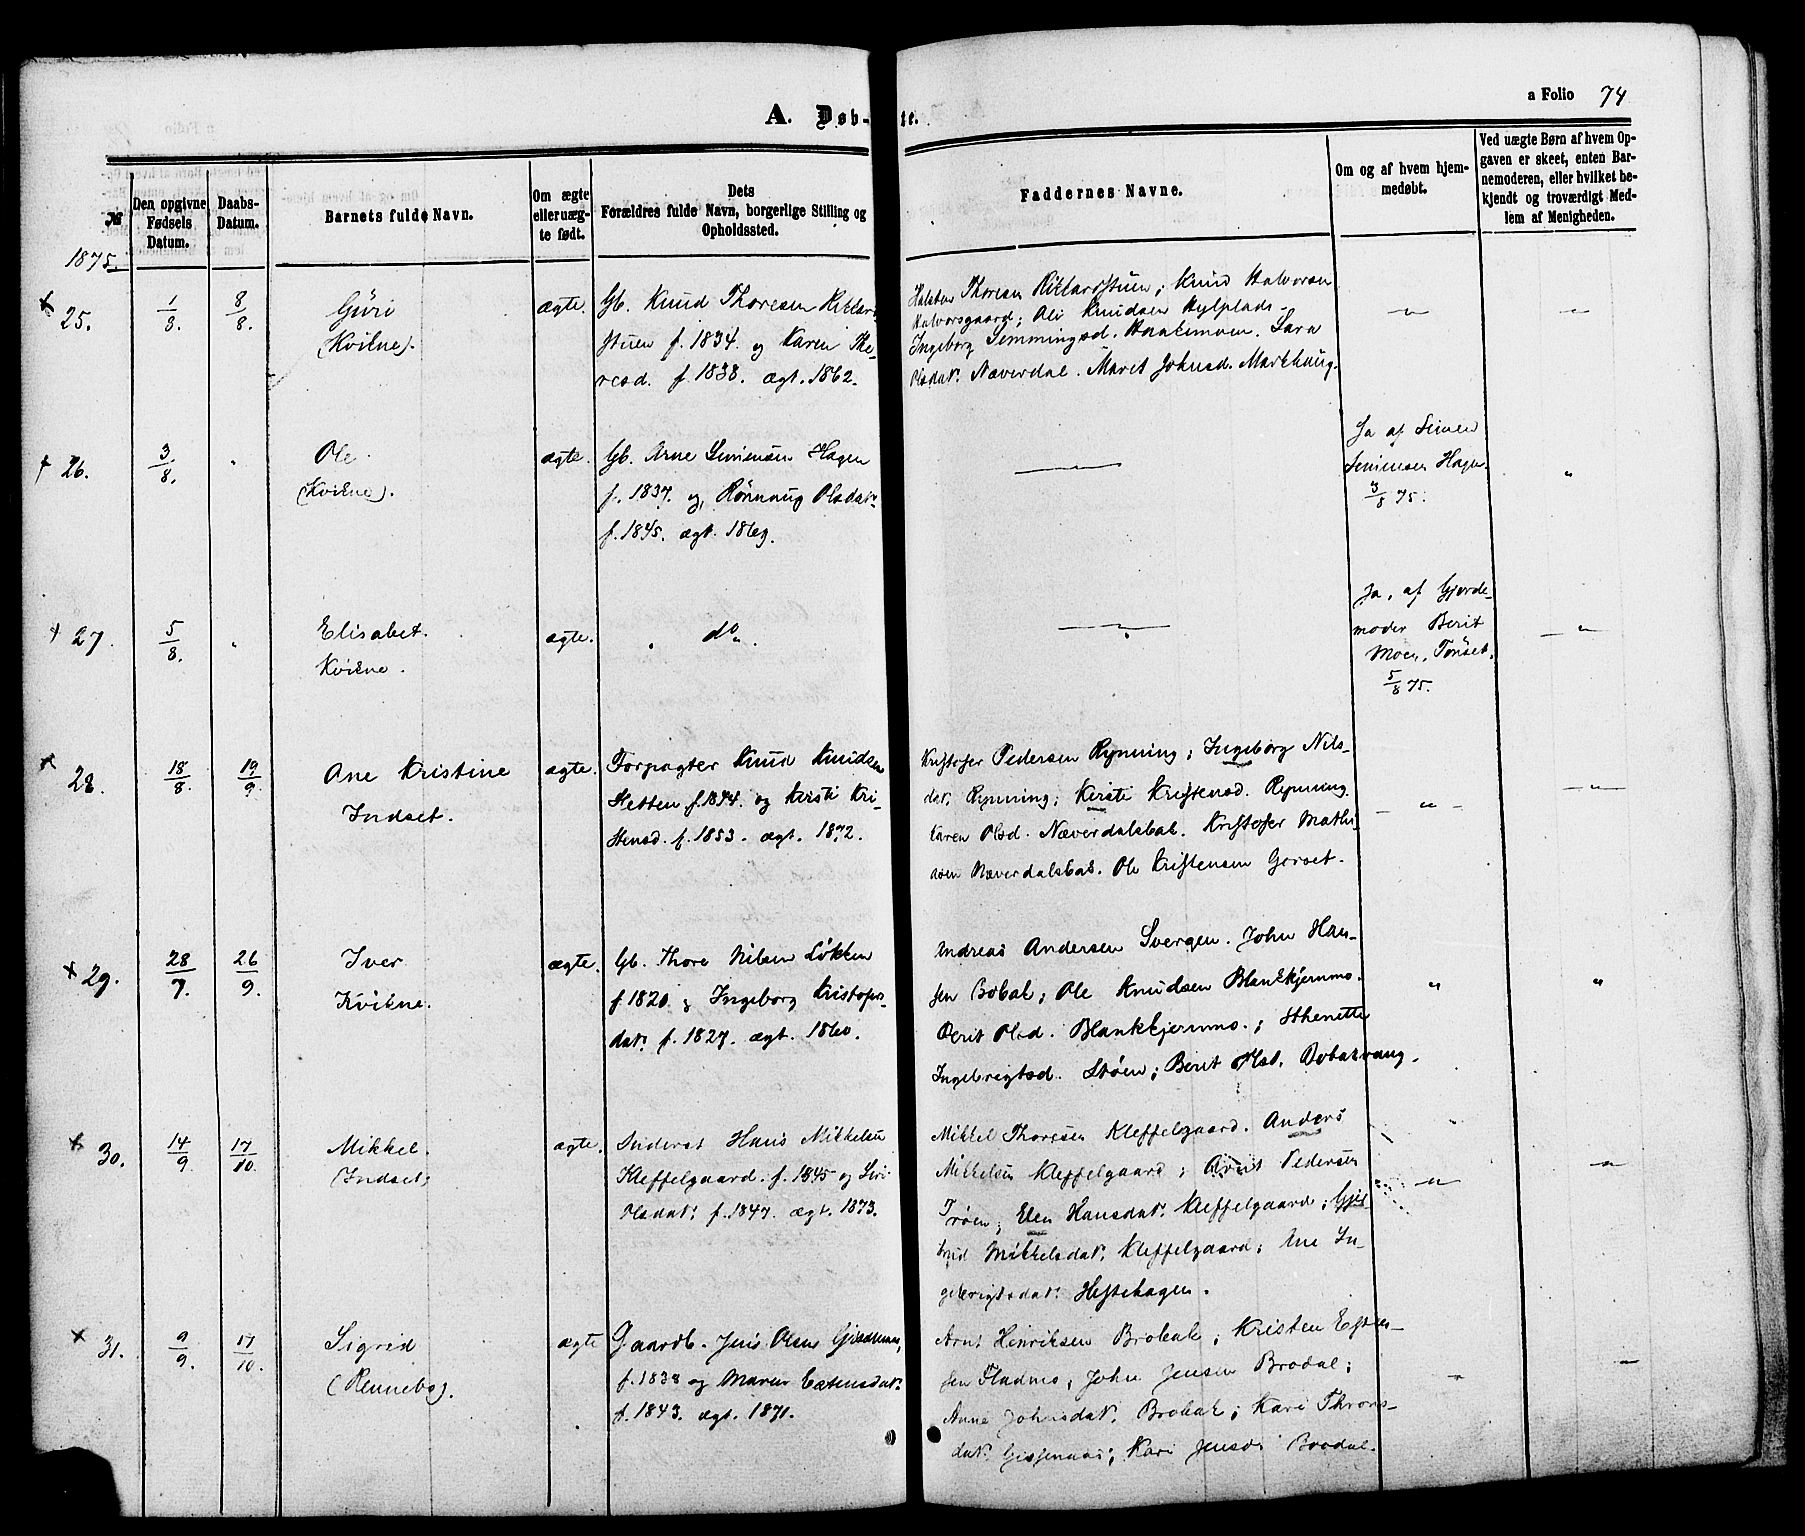 a Folio 74
A. Døb-te.
№
Den opgivne Fødsels Datum.
Daabs-Datum.
Barnets fulde Navn.
Om ægte eller uæg-te født.
Dets Forældres fulde Navn, borgerlige Stilling og Opholdssted.
Faddernes Navne.
Om og af hvem hjem-medøbt.
Ved uægte Børn af hvem Op-gaven er skeet, enten Bar-nemoderen, eller hvilket be-kjendt og troværdigt Med-lem af Menigheden.
1875.
25.
1/8.
8/8.
Guri
(Kvikne).
ægte.
Gb. Knud Thoresen
stuen f. 1834. og Karen The-
resd. f. 1838. ægt. 1862.
Halsten Thoresen; Knud Halvorsen
Halvorsgaard; Ole Knudsen
Ingeborg Simmingsd. Lara
Olsdat. Næverdal. Marit Johnsd. Markhaug.
26.
3/8.
"
Ole.
(Kvikne).
ægte.
Gb. Arne Simensen Hagen
f. 1837. og Rønnaug Olsdat.
f. 1845. ægt. 1869.
Ja af Simen
Simensen Hagen
3/8 75.
"
27.
5/8.
"
Elisabet.
Kvikne.
ægte.
" do "
Ja, af Gjorde-
moder Berit
Moen, Tønset.
5/8 75.
"
28.
18/8.
19/9.
Ane Kristine
Indset.
ægte.
Forpagter Knud Knudsen
Stetten f. 1844. og Kirsti Kri-
stensd. f. 1853. ægt. 1872.
Kristofer Pedersen Rynning; Ingeborg Nils-
dat. Rynning; Kirsti Kristensd. Rynning.
Karen Olsd. Næverdalsbak. Kristofer Mathi-
sen Næverdalsbak. Ole Kristensen Gorset.
"
"
29.
28/7.
26/9.
Iver
Kvikne.
ægte.
Gb. Thore Nilsen Løkken
f. 1820. og Ingeborg Kristofers-
dat. f. 1827. ægt. 1860.
Andreas Andersen Svergen. John Han-
sen Bobak; Ole Knudsen Blankkjernmo.
Berit Olsd. Blankkjernmo.; Sthenette
Ingebrigtsd. Støen; Berit Olsd. Bobakvang.
"
"
30.
14/9.
17/10.
Mikkel.
Indset.
ægte.
Inderst Hans Mikkelsen
Kleffelgaard. f. 1845 og Siri
Olsdat. f. 1847. ægt. 1873.
Mikkel Thoresen Kleffelgaard. Anders
Mikkelsen Kleffelgaard; Arnt Pedersen
Trøen; Elen Hansdat. Kleffelgaard; Gjer-
trud Mikkelsdat. Kleffelgaard; Ane In-
gebrigtsdat. Heftehagen.
"
"
31.
9/9.
17/10.
Sigrid
(Rennebo).
ægte
Gaardb. Jens Olsen
f. 1838 og Maren Estensdat.
f. 1843. ægt. 1871.
Arnt Henriksen Brobak; Kristen Esten-
sen Fladmo; John Jensen Brodal;
Anne Johnsdat. Brobak; Kari Throns-
dat.; Kari Jensd. Brodal.
"